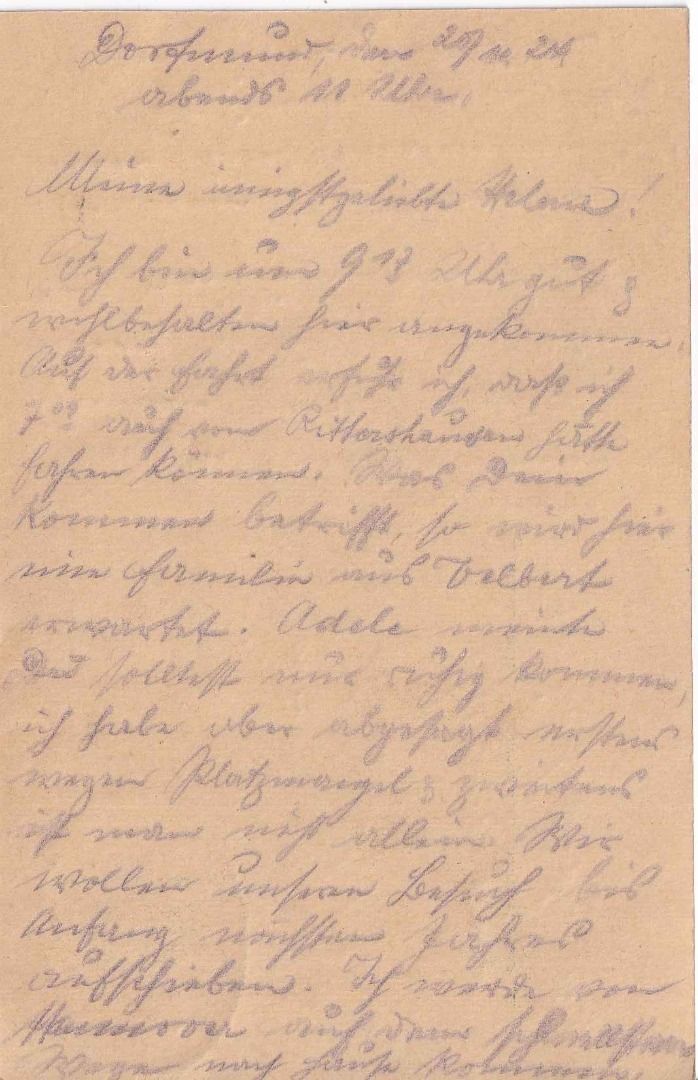 Dortmund, den 29/11. 24
abends 11 Uhr.
Meine innigstgeliebte Helene!
Ich bin um 9 13 Uhr gut &
wohlbehalten hier angekommen.
Auf der Fahrt erfuhr ich, daß ich
auch von Rittershausen hätte
fahren können. Was Dein
Kommen betrifft, so wird hier
eine Familie aus Velbert
erwartet. Adele meinte
Du solltest nur ruhig kommen,
ich habe aber abgesagt erstens
wegen Platzmangel & zweitens
ist man nicht allein. Wir
wollen unseren Besuch bis
Anfang nächsten Jahres
aufschieben. Ich werde von
Hannover auf dem schnellsten
Wege nach Hause kommen.